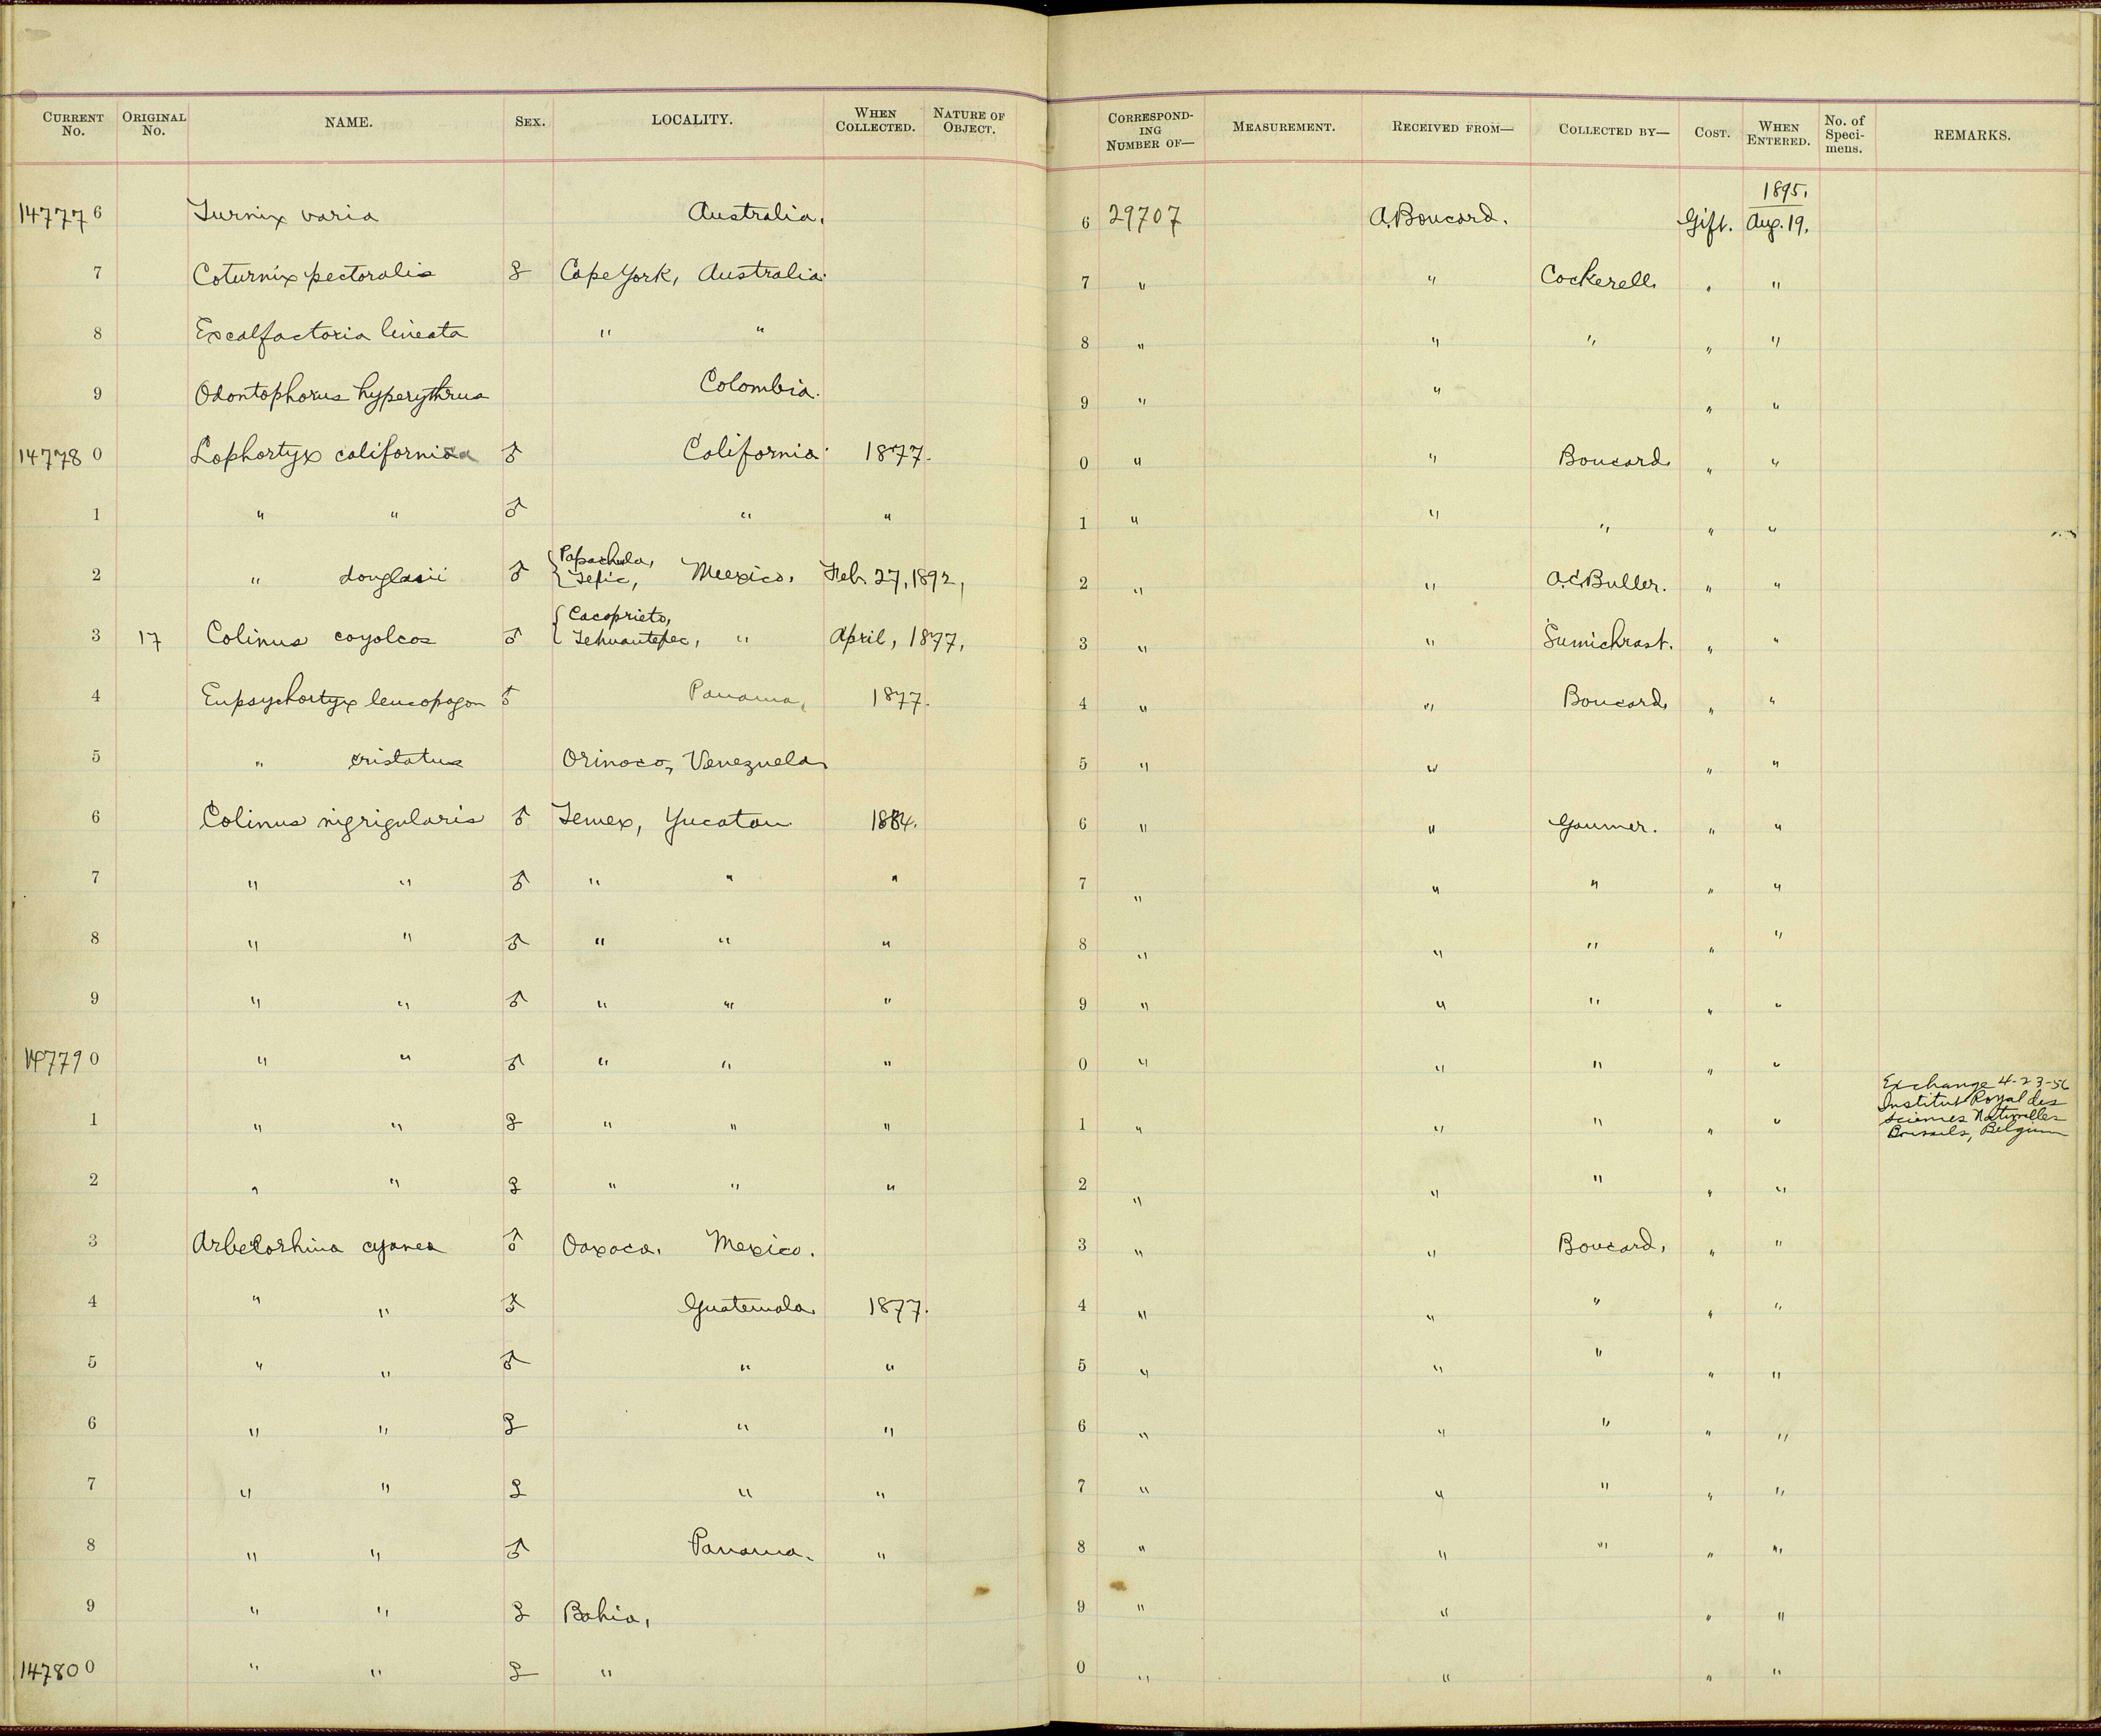 CURRENT No. ORIGINAL No. NAME. SEX. LOCALITY. WHEN COLLECTED. NATURE OF OBJECT. CORRESPONDING NUMBER OF— MEASUREMENT. RECEIVED FROM— COLLECTED BY— COST. WHEN ENTERED. No. of Specimens. REMARKS.
1895.
147776 Turnix varia Australia. 6 29707 A. Boucard. Gift. Aug. 19.
7 Coturnix pectoralis ♀ Cape York, Australia. 7 " " Cockerell. " "
8 Excalfactoria lineata " " 8 " " " " "
9 Odontophorus hyperythrus Colombia. 9 " " " "
147780 Lophortyx californica ♂ California. 1877. 0 " " Boucard. " "
1 " " ♂ " " 1 " " " " "
2 " douglasii ♂ { Tepic, Mexico. Feb. 27, 1892, 2 " " A.C. Buller. " "
3 17 Colinus coyolcos ♂ { Cacoprieto, Tehuantepec, " April, 1877, 3 " " Sumichrast. " "
4 Eupsychortyx leucopogon ♂ Panama, 1877. 4 " " Boucard. " "
5 " cristatus Orinoco, Venezuela. 5 " " " "
6 Colinus nigrigularis ♂ Temex, Yucatan. 1884. 6 " " Gaumer. " "
7 " " ♂ " " " 7 " " " " "
8 " " ♂ " " " 8 " " " " "
9 " " ♂ " " " 9 " " " " "
147790 " " ♂ " " " 0 " " " " "
1 " " ♀ " " " 1 " " " " " Exchange 4-23-56
Institut Royal des
Sciences Naturelles
Brussels, Belgium
2 " " ♀ " " " 2 " " " " "
3 Arbelorhina cyanea ♂ Oaxaca. Mexico. 3 " " Boucard. " "
4 " " ♂ Guatemala. 1877. 4 " " " " "
5 " " ♂ " " 5 " " " " "
6 " " ♀ " " 6 " " " " "
7 " " ♀ " " 7 " " " " "
8 " " ♂ Panama. " 8 " " " " "
9 " " ♀ Bahia, 9 " " " "
147800 " " ♀ " 0 " " " "